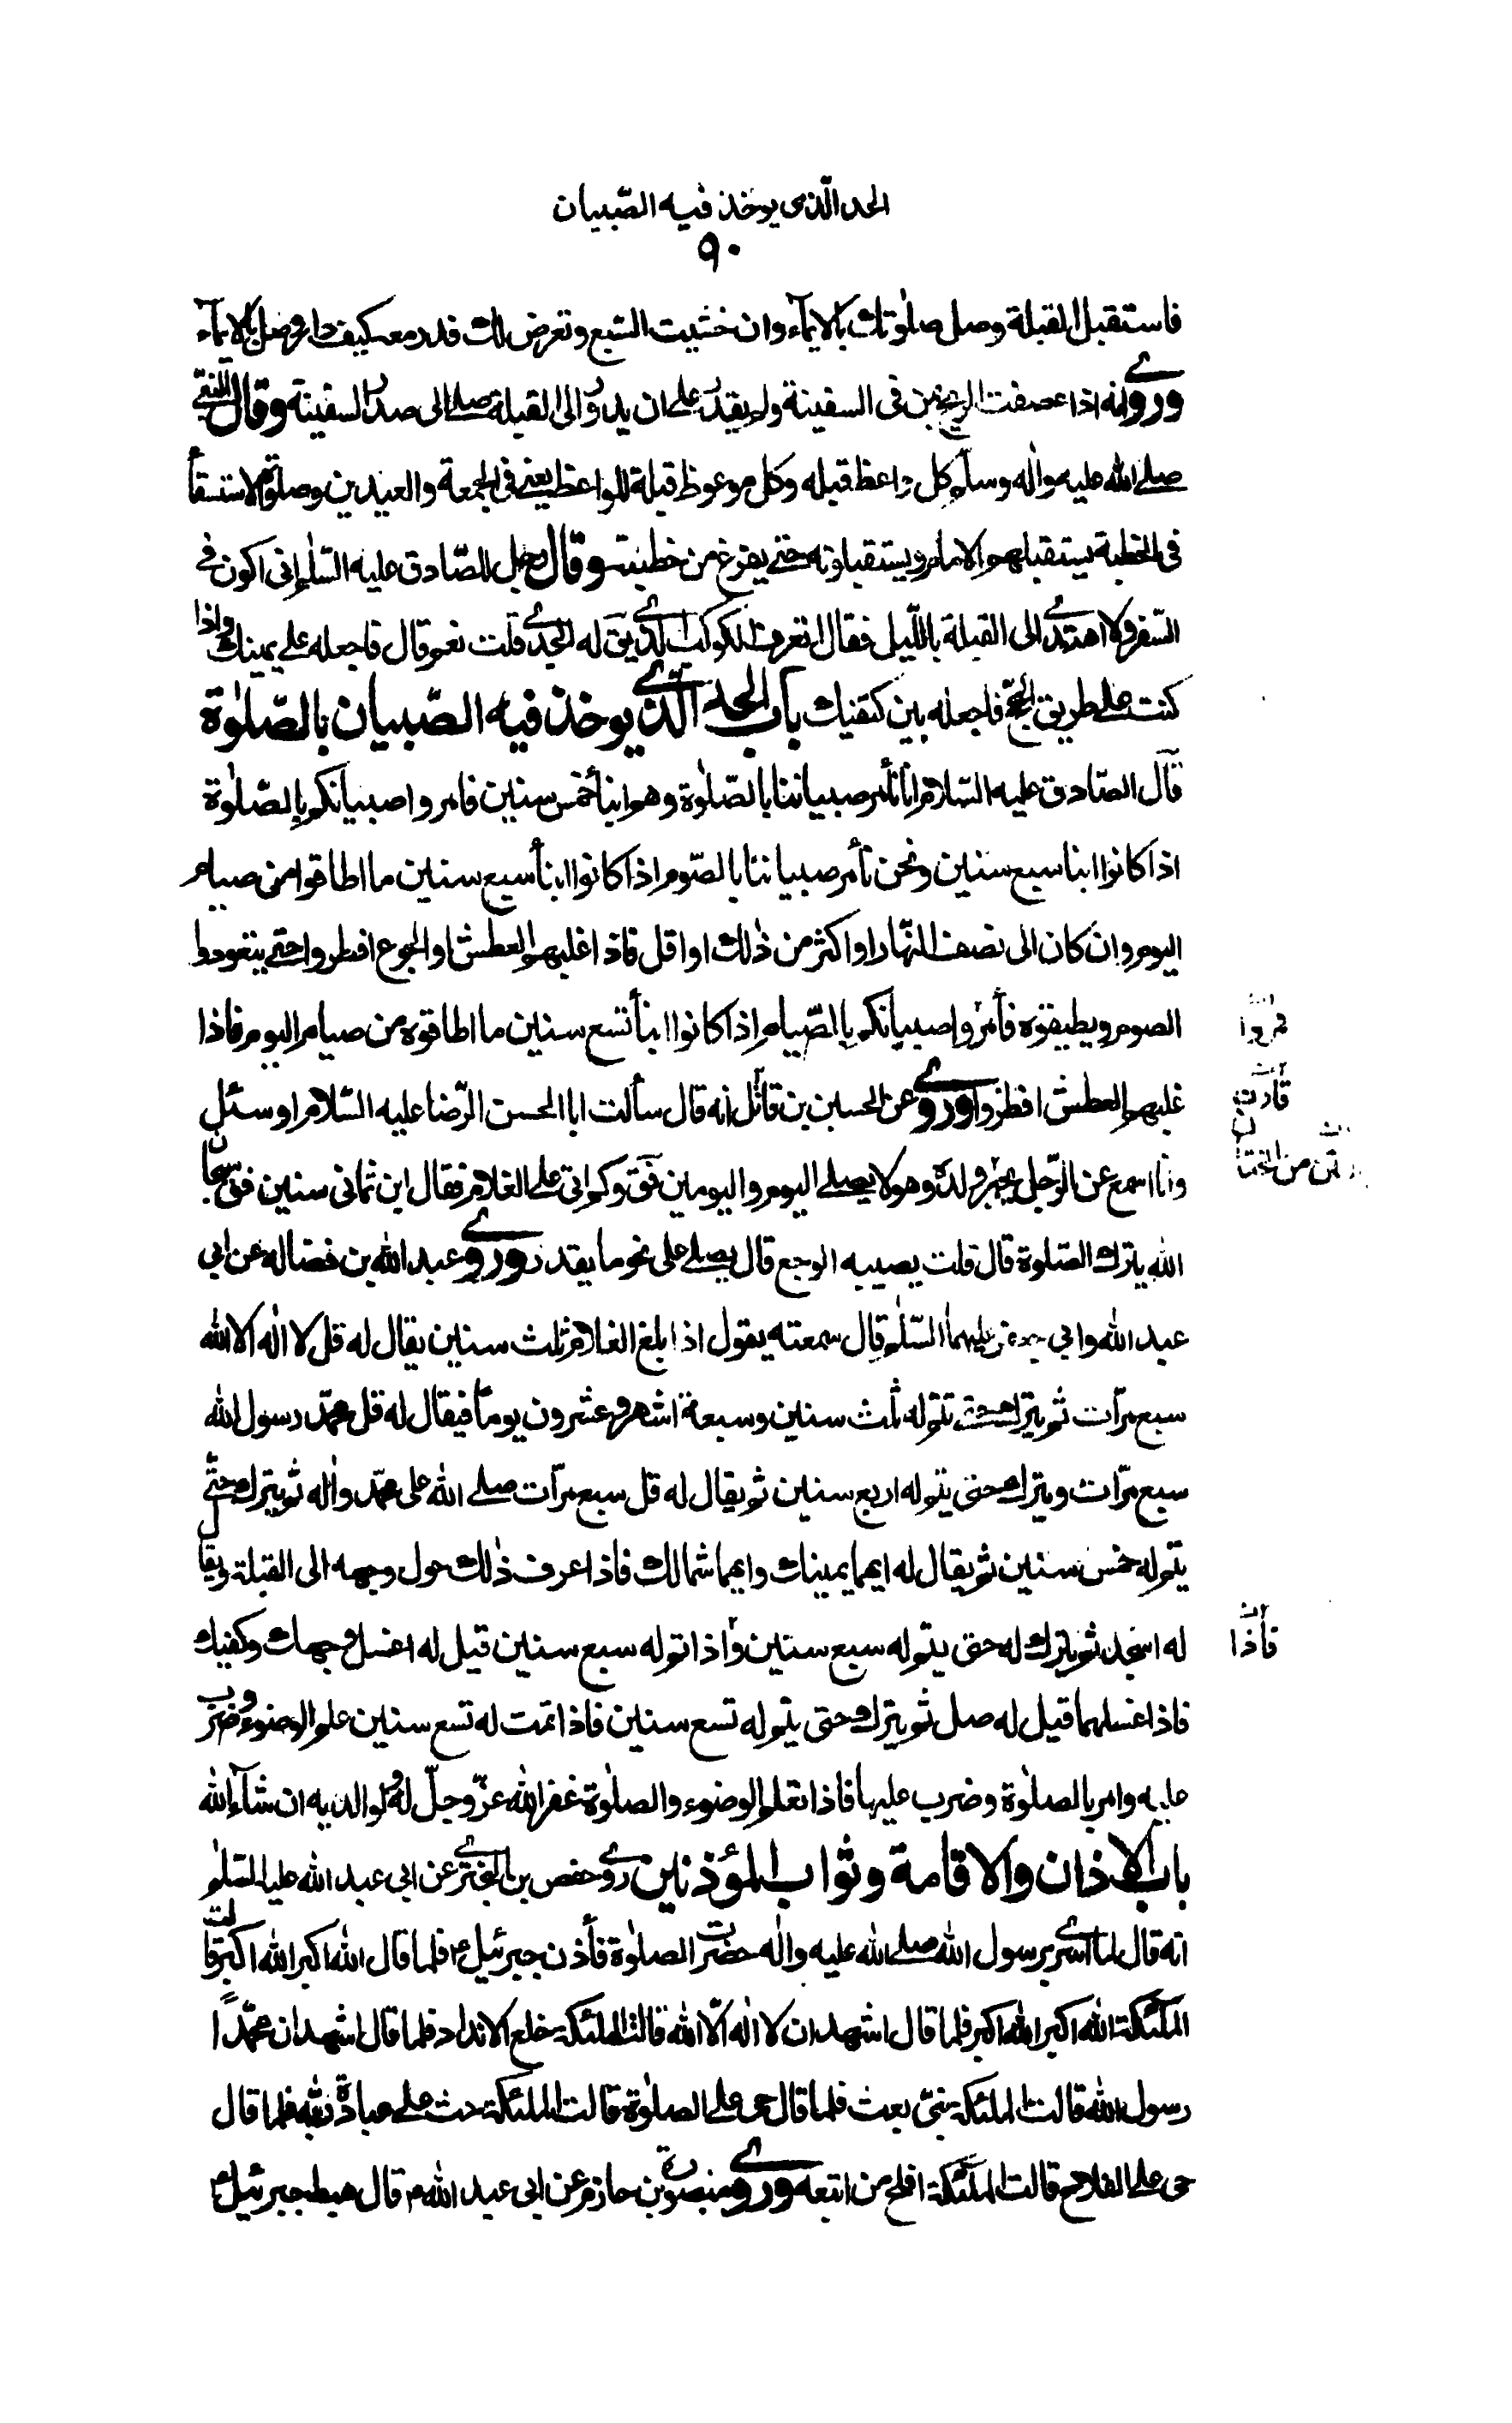 الحد الّذى يوخذ فيه الصّبيان
٩٠
فاستقبل القبلة وصل صلوتك بالايمآء وان خشيت السّبع وتعرض لك فدر معه كيف دار وصل بالايمآء
وروى انه اذا عصفت الريح بمن فى السفينة ولم يقدر على ان يدور الى القبلة صلى الى صدر السفينة وقال النّبي
صلى الله عليه واله وسلم كل واعظ قبله وكل موعوظ قبلة للواعظ يعنى فى الجمعة والعيدين وصلوة الاستسقآ
فى الخطبة يستقبلهم الامام ويستقبلونه حتى يفرغ من خطبته وقال رجل للصّادق عليه السّلم انى اكون فى
السّفر ولا اهتدى الى القبلة باللّيل فقال اتعرف الكوكب الّذى يق له الجدى قلت نعم قال فاجعله على يمينك واذا
كنت على طريق الحجّ فاجعله بين كتفيك باب الحد الّذى يوخذ فيه الصّبيان بالصّلوة
قال الصّادق عليه السّلام انا نأمر صبياننا بالصّلوة وهم ابنآ خمس سنين فامروا صبيانكم بالصّلوة
اذا كانوا ابنا سبع سنين ونحن نأمر صبياننا بالصّوم اذا كانوا ابنآ سبع سنين ما اطاقوا من صيام
اليوم وان كان الى نصف النّهار او اكثر من ذلك او اقل فاذا غلبهم العطش او الجوع افطروا حتى يتعودوا
الصوم ويطيقوه فأمروا صبيانكم بالصّيام اذا كانوا ابنآ تسع سنين ما اطاقوه من صيام اليوم فاذا
فمروا
غلبهم العطش افطروا وروى عن الحسين بن قائل انه قال سألت ابا الحسن الرّضا عليه السّلام او سئل
قارن
وانا اسمع عن الرّجل يجبر ولده وهو لا يصلى اليوم واليومين فق وكم اتى على الغلام فقال ابن ثمانى سنين فق سبحان
من الختا
الله يترك الصّلوة قال قلت يصيبه الوجع قال يصلى على نحو ما يقدر وروى عبد الله بن فضاله عن ابى
عبد الله وابي جعفر عليهما السّلم قال سمعته يقول اذا بلغ الغلام ثلث سنين يقال له قل لا اله الا الله
سبع مرّات ثم يترك حتى يتم له ثلث سنين وسبعة اشهر وعشرون يوما فيقال له قل محمّد رسول الله
سبع مرّات ويترك حتى يتم له اربع سنين ثم يقال له قل سبع مرّات صلى الله على محمّد واله ثم يترك حتّى
يتم له خمس سنين ثم يقال له ايهما يمينك وايهما شمالك فاذا عرف ذلك حول وجهه الى القبلة ويقال
له اسجد ثم يترك له حتى يتم له سبع سنين واذا تم له سبع سنين قيل له اغسل وجهك وكفيك
فاذا
فاذا غسلهما قيل له صل ثم يترك حتى يتم له تسع سنين فاذا تمت له تسع سنين علم الوضوء وضرب
عليه وامر بالصلوة وضرب عليها فاذا تعلم الوضوء والصلوة غفر الله عزّ وجلّ له ولوالديه ان شآء الله
باب الاذان والاقامة وثواب المؤذنين روى حفص بن البخترى عن ابي عبد الله عليه السّلم
انه قال لما اسرى برسول الله صلى الله عليه واله حضرت الصلوة فأذن جبرئيل ع فلما قال الله اكبر الله اكبر قالت
الملئكة الله اكبر الله اكبر فلما قال اشهد ان لا اله الّا الله قالت الملئكة خلع الانداد فلما قال اشهد ان محمّدًا
رسول الله قالت الملئكة نبيّ بعث فلما قال حى على الصلوة قالت الملئكة حث على عبادة ربه فلما قال
حى على الفلاح قالت الملئكة افلح من اتبعه وروى منصور بن حازم عن ابى عبد الله ع قال هبط جبرئيل ع